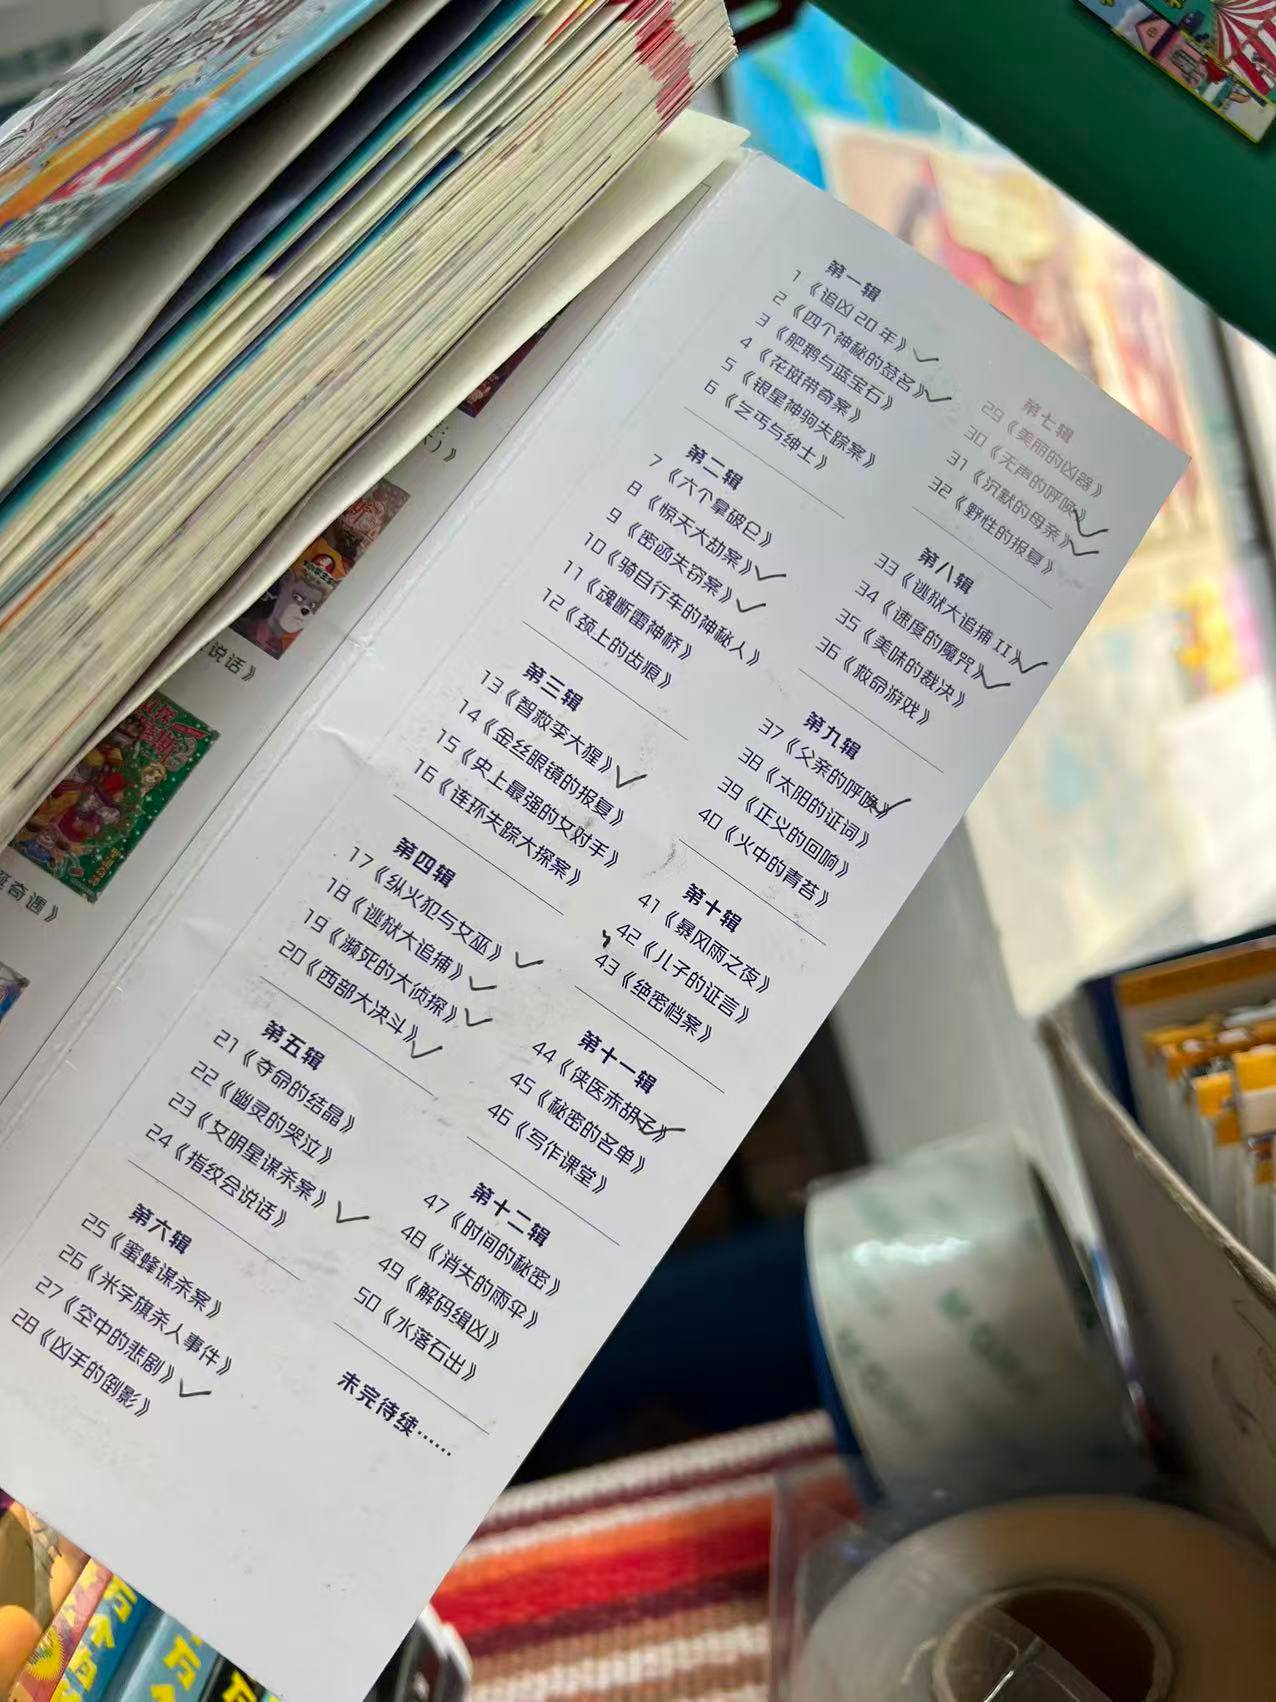 第一辑
1《追凶20年》
2《四个神秘的签名》
3《肥鹅与蓝宝石》
4《花斑带奇案》
5《银星神驹失踪案》
6《乞丐与绅士》
第二辑
7《六个拿破仑》
8《惊天大劫案》
9《密函失窃案》
10《骑自行车的神秘人》
11《魂断雷神桥》
12《颈上的齿痕》
第三辑
13《智救李大猩》
14《金丝眼镜的报复》
15《史上最强的女对手》
16《连环失踪大探案》
第四辑
17《纵火犯与女巫》
18《逃狱大追捕》
19《濒死的大侦探》
20《西部大决斗》
第五辑
21《夺命的结晶》
22《幽灵的哭泣》
23《女明星谋杀案》
24《指纹会说话》
第六辑
25《蜜蜂谋杀案》
26《米字旗杀人事件》
27《空中的悲剧》
28《凶手的倒影》
第七辑
29《美丽的凶器》
30《无声的呼唤》
31《沉默的母亲》
32《野性的报复》
第八辑
33《逃狱大追捕 II》
34《速度的魔咒》
35《美味的裁决》
36《救命游戏》
第九辑
37《父亲的呼唤》
38《太阳的证词》
39《正义的回响》
40《火中的青苔》
第十辑
41《暴风雨之夜》
42《儿子的证言》
43《绝密档案》
第十一辑
44《侠医赤胡子》
45《秘密的名单》
46《写作课堂》
第十二辑
47《时间的秘密》
48《消失的雨伞》
49《解码缉凶》
50《水落石出》
未完待续……
说话》
奇遇》